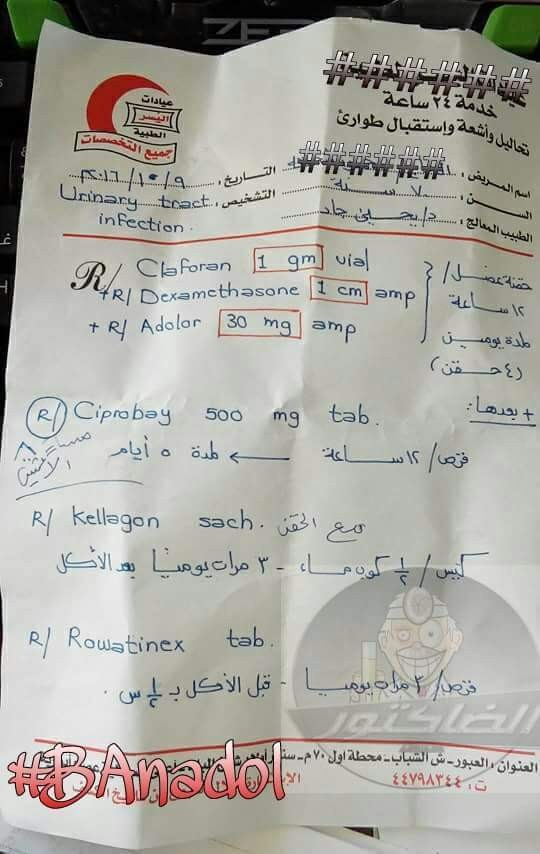 ######
خدمة ٢٤ ساعة
تحاليل وأشعة وإستقبال طوارئ
عيادات
اليسر
الطبية
جميع التخصصات
اسم المريض: ######
التاريخ: ٢٠١٦/١٠/٩
السن: ٧٠ سنة
التشخيص: Urinary tract infection.
الطبيب المعالج: د/ يحيى جاد
R/ Claforan 1 gm vial
+R/ Dexamethasone 1 cm amp
+ R/ Adolor 30 mg amp
حقنة عضل/
١٢ ساعة
لمدة يومين
(٤ حقن)
+ بعدها:
R/ Ciprobay 500 mg tab.
قرص/ ١٢ ساعة ← لمدة ٥ أيام
٨ مساء
الاثنين
R/ Kellagon sach. مع الحقن
كيس/ ½ كوب ماء - ٣ مرات يومياً بعد الأكل
R/ Rowatinex tab.
قرص/ ٣ مرات يومياً - قبل الأكل بـ ½ س.
الفاكتور
العنوان: العبور - ش الشباب - محطة اول ٧٠م -
ت: ٤٤٧٩٨٣٤٤
#BAnadol